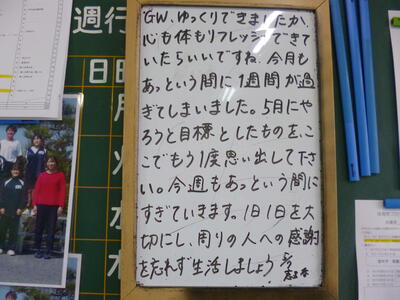 GW、ゆっくりできましたか。
心も体もリフレッシュできて
いたらいいですね。今月も
あっという間に1週間が過
ぎてしまいました。5月にや
ろうと目標としたものを、こ
こでもう1度思い出して下さ
い。今週もあっという間に
すぎていきます。1日1日を大
切にし、周りの人への感謝
を忘れず生活しましょう
週行
日
月
火
水